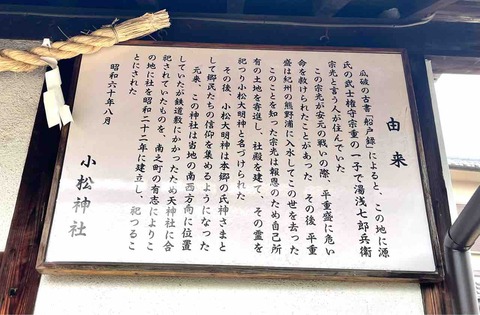 由来
瓜破の古書「船戸録」によると、この地に源
氏の武士権守宗重の一子で湯浅七郎兵衛
宗光と言う人が住んでいた
この宗光が安元の戦いの際、平重盛に危い
命を救けられたことがあった　その後、平重
盛は紀州の熊野浦に入水してこの世を去った
このことを知った宗光は報恩のため自己所
有の土地を寄進し、社殿を建て、その霊を
祀つり小松大明神と名づけられた
その後、小松大明神は本郷の氏神さまと
して郷民たちの信仰を集めるようになった
元来、この神社は当地の南西方向に位置
していたが鉄道敷にかかったため天神社に合
祀されていたものを、南之町の有志によりこ
の地に社を昭和二十二年に建立し、祀つるこ
とにされた
昭和六十年八月
小松神社